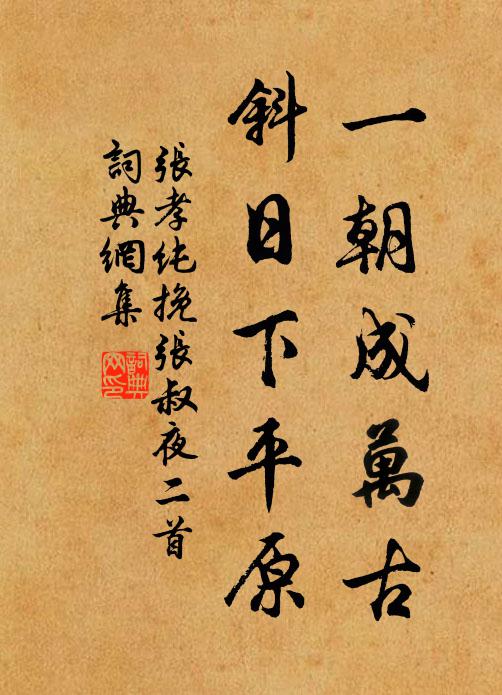 一朝成萬古
斜日下平原
張孝純挽張叔夜二首
詞典網集
詞典網印